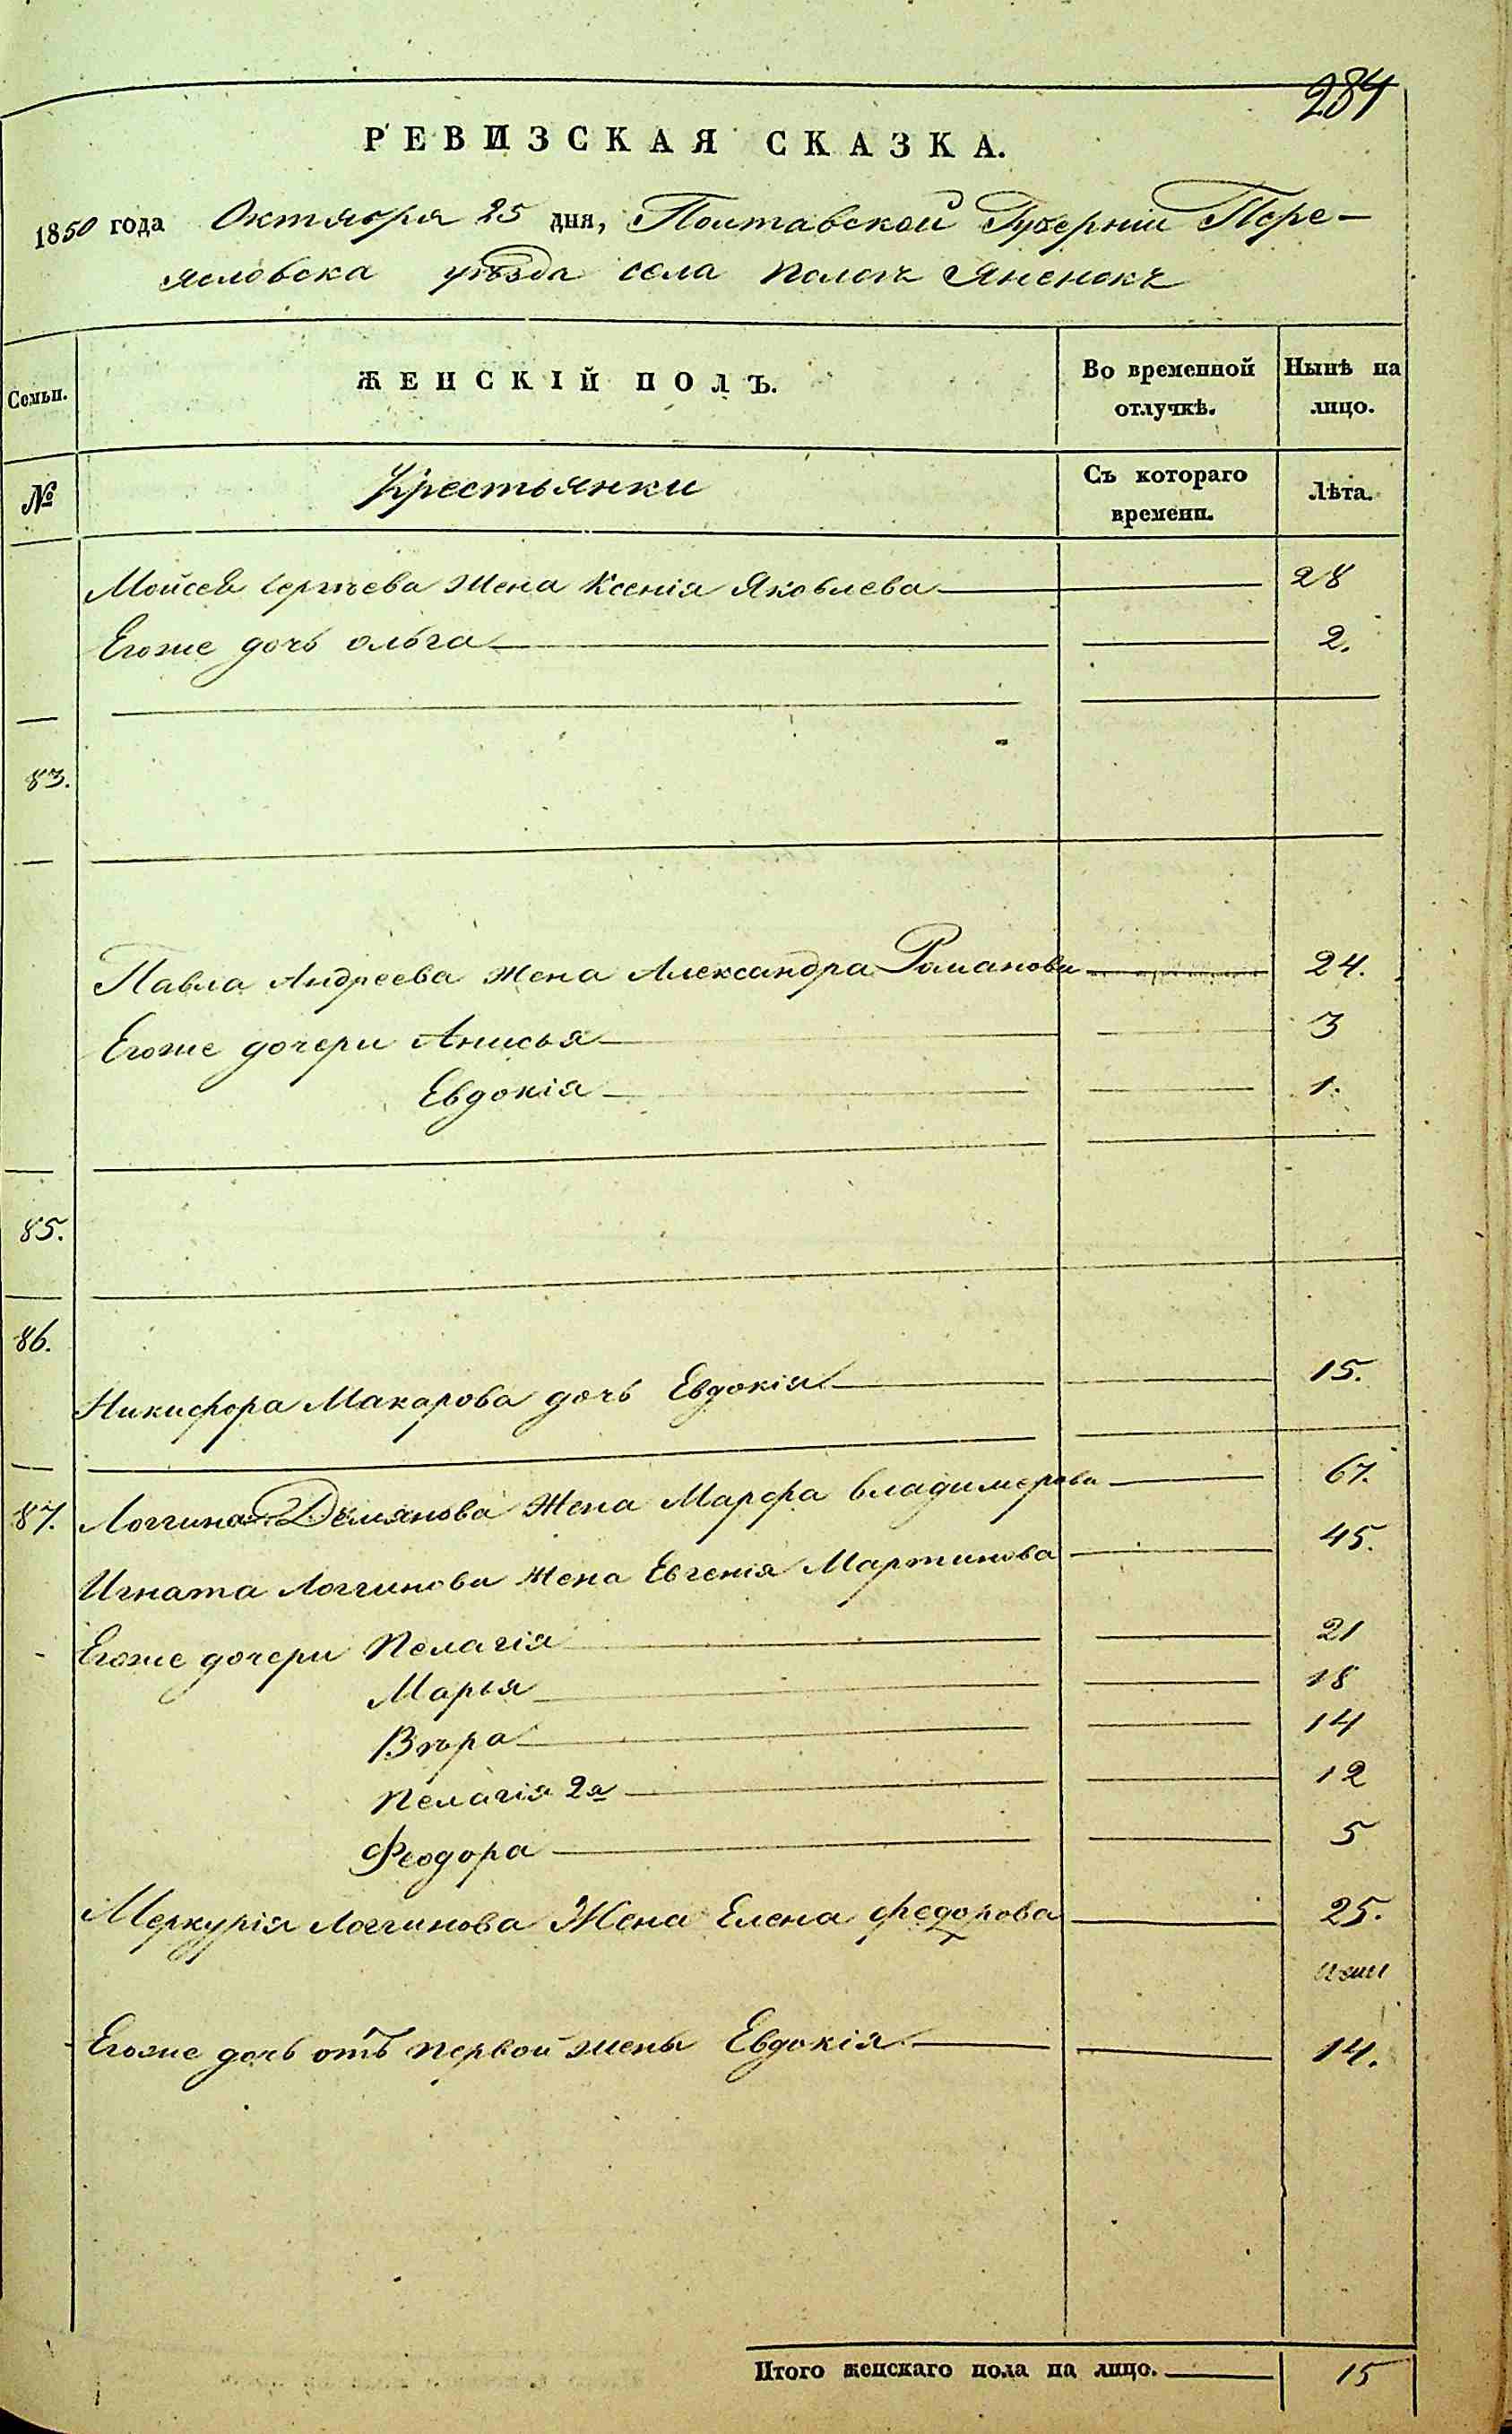 284
РЕВИЗСКАЯ СКАЗКА.
1850 года Октября 25 дня, Полтавской Губерніи Пере-
яславска уѣзда села Пологъ Яненокъ
Семьи. ЖЕНСКІЙ ПОЛЪ. Во временной отлучкѣ. Нынѣ на лицо.
№ Крестьянки Съ котораго времени. Лѣта.
Мойсея Сергѣева Жена Ксенія Яковлева 28
Егоже дочь Ольга 2.
83.
Павла Андреева Жена Александра Романова 24.
Егоже дочери Анисья 3
Евдокія 1.
85.
86.
Никифора Макарова дочь Евдокія 15.
87. Логгина Демянова Жена Марфа Владимерова 67.
Игната Логгинова Жена Евгенія Мартинова 45.
Егоже дочери Пелагія 21
Марья 18
Вѣра 14
Пелагія 2я 12
Феодора 5
Меркурія Логгинова Жена Елена Федорова 25.
Егоже дочь отъ первой жены Евдокія 14.
Итого женскаго пола на лицо. 15